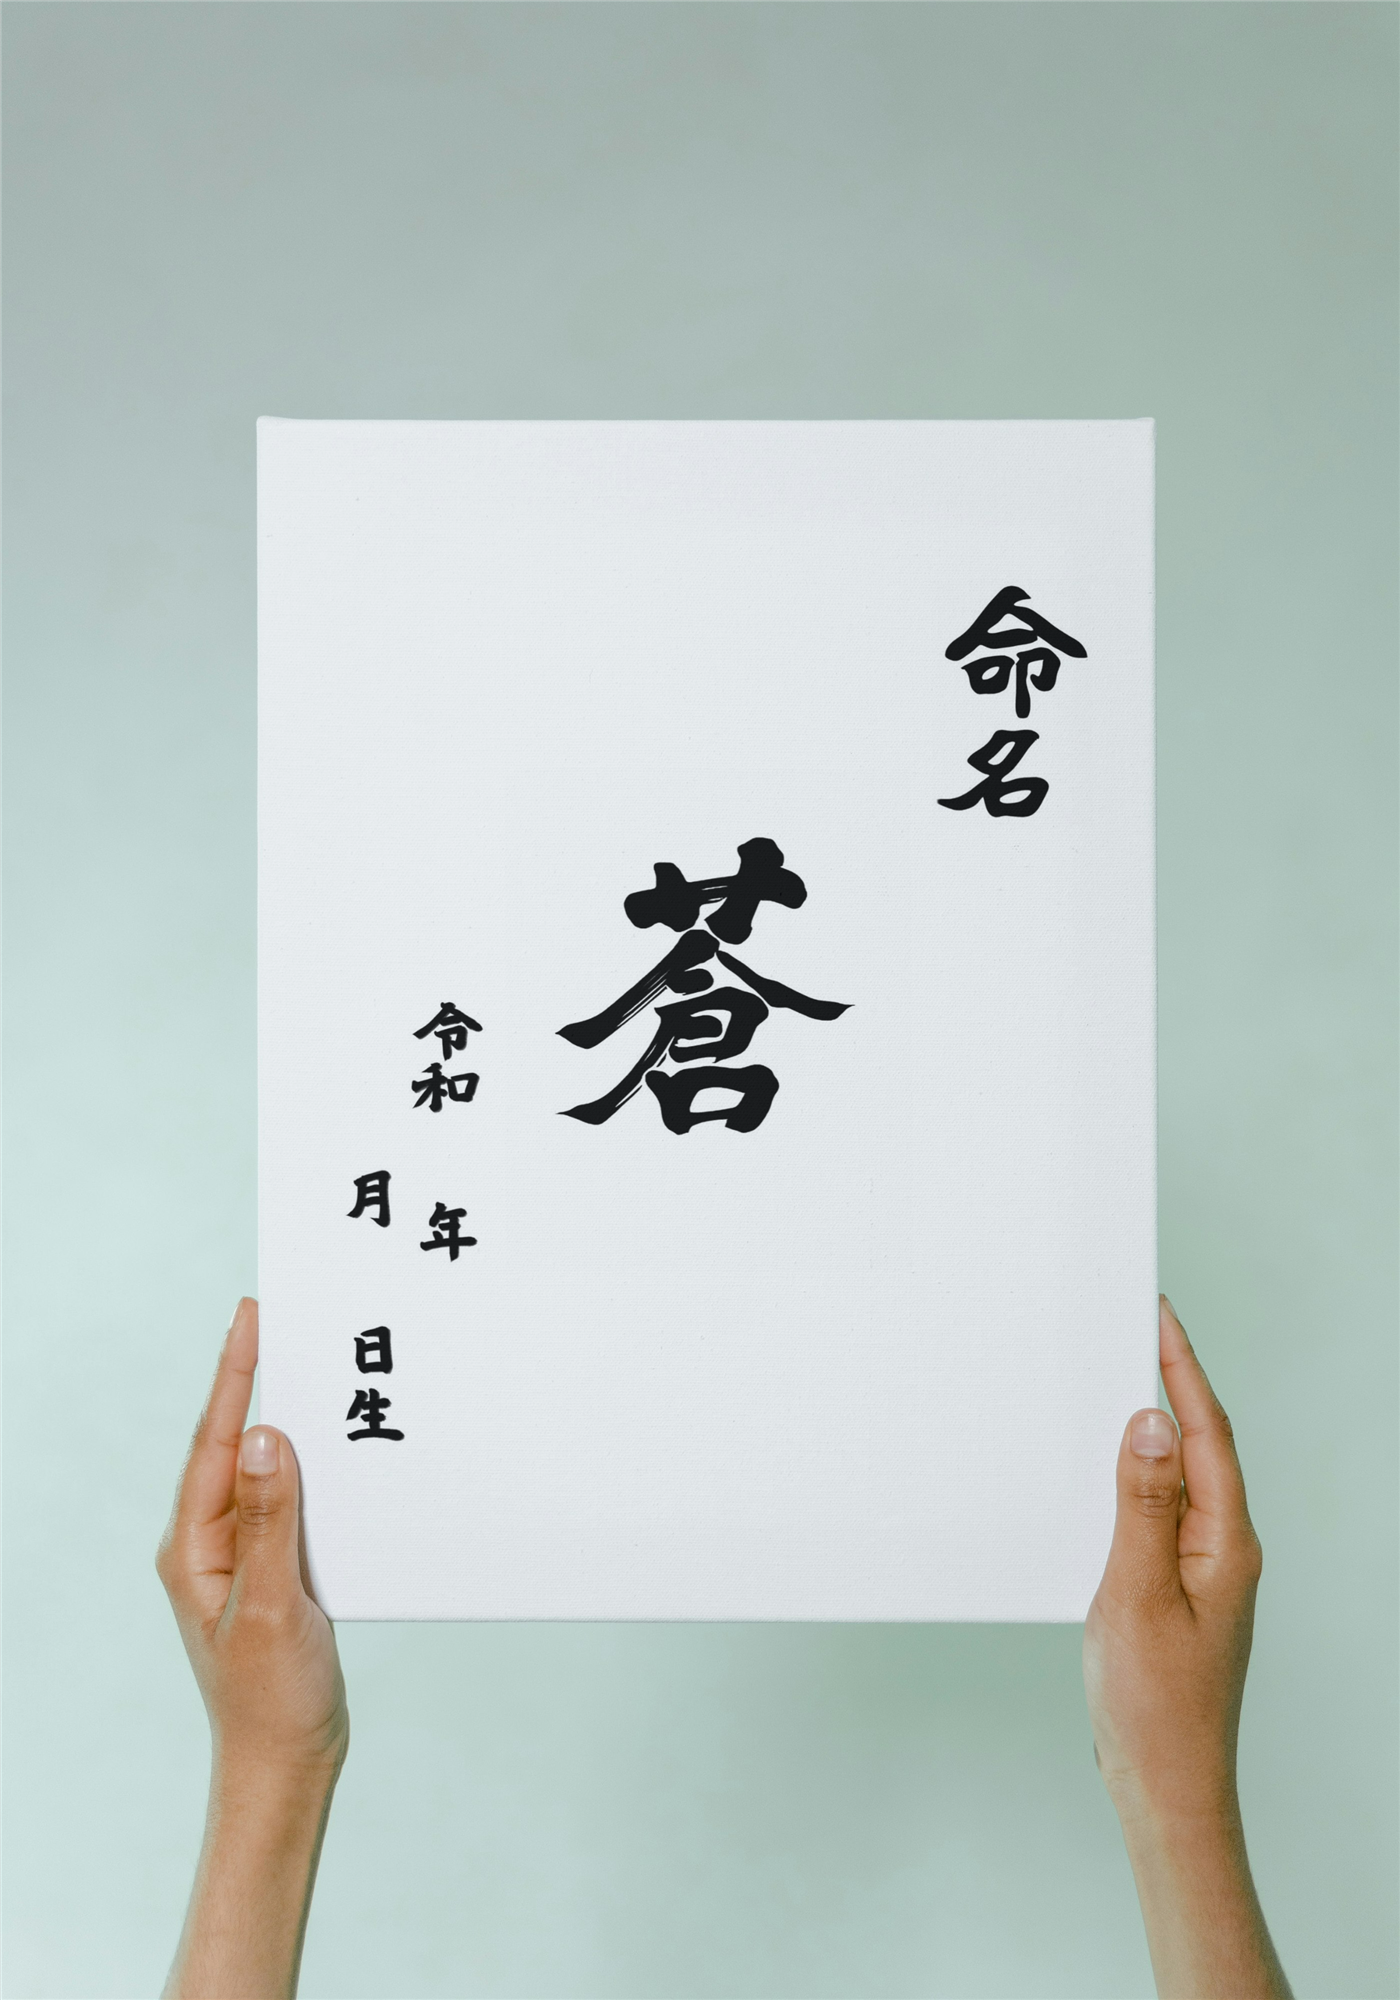 命名
蒼
令和 年
月 日生